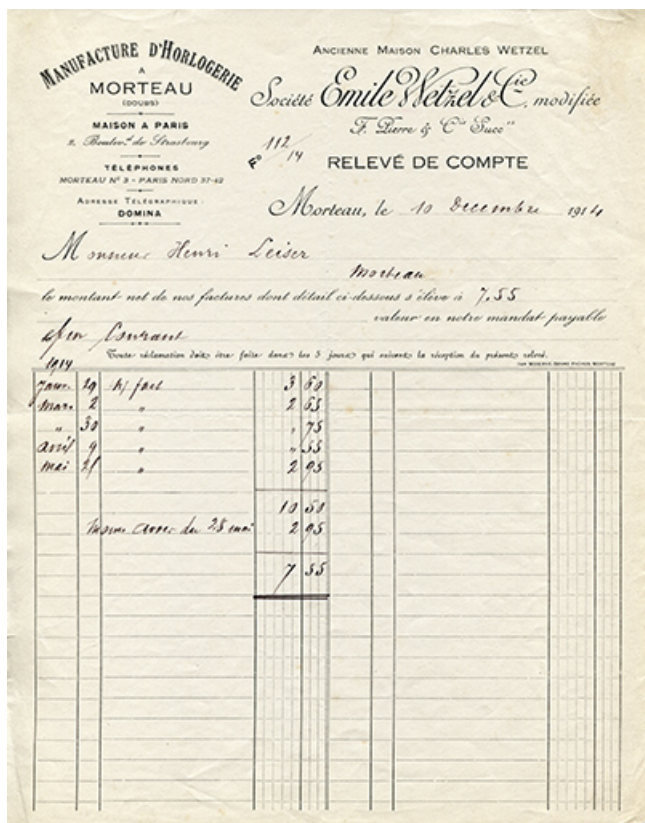 MANUFACTURE D'HORLOGERIE
A
MORTEAU
(DOUBS)
MAISON A PARIS
2, Boulevd de Strasbourg
TÉLÉPHONES
MORTEAU No 3 - PARIS NORD 37-42
ADRESSE TÉLÉGRAPHIQUE:
DOMINA
ANCIENNE MAISON CHARLES WETZEL
Société Emile Wetzel & Cie modifiée
F. Pierre & Cie Succrs
Fo 112/14
RELEVÉ DE COMPTE
Morteau, le 10 Decembre 1914
Monsieur Henri Leiser
Morteau
le montant net de nos factures dont détail ci-dessous s'élève à 7.55
valeur en notre mandat payable
fin Courant
Toute réclamation doit être faite dans les 5 jours qui suivent la réception du présent relevé.
1914
Janv. 29 n/ fact 3 60
Mars 2 " 2 65
" 30 " " 75
Avril 9 " " 55
Mai 28 " 2 95
10 50
Moins du 28 mai 2 95
7 55